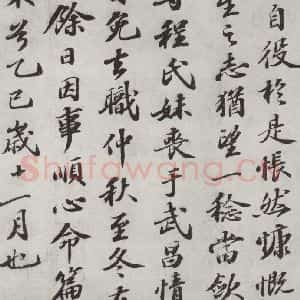 自役於是悵然慷慨
生之志猶望一稔當斂
尋程氏妹喪于武昌情
自免去職仲秋至冬在
餘日因事順心命篇
來兮乙巳歲十一月也
Shufawang.cn